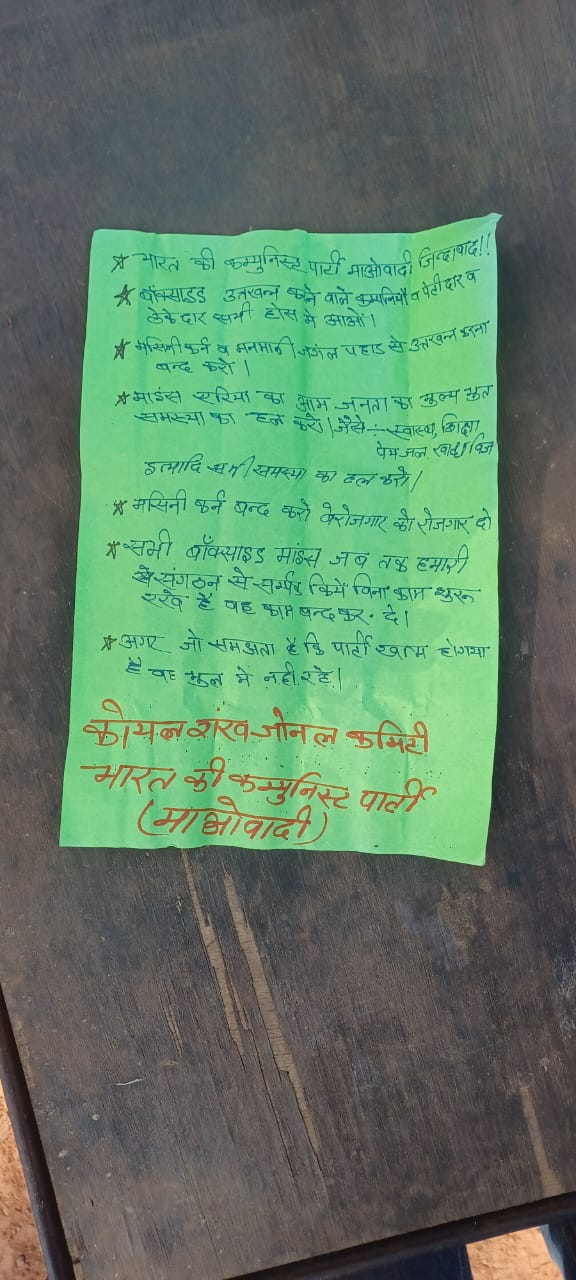 ☆ भारत की कम्युनिस्ट पार्टी माओवादी जिन्दाबाद!!
☆ बॉक्साइड उत्खनन करने वाले कम्पनियों व पेटीदार व
ठेकेदार सभी होस मे आओ।
☆ मसिनीकर्न व मनमानी जंगल पहाड़ से उत्खनन करना
बन्द करो।
☆ माइंस एरिया का आम जनता का मुल्य भुत
समस्या का हल करो। जैसे:- स्वास्थ, शिक्षा
पेयजल
इत्यादि सभी समस्या का हल करो।
☆ मसिनीकर्न बन्द करो बेरोजगार को रोजगार दो
☆ सभी बॉक्साइड माइंस जब तक हमारी
संगठन से सर्म्पक किये विना काम शुरू
रखे है वह काम बन्द कर दे।
☆ अगर जो समझता है कि पार्टी खत्म होगया
है वह भुल मे नही रहे।
कोयल शंख जोनल कमिटी
भारत की कम्युनिस्ट पार्टी
(माओवादी)